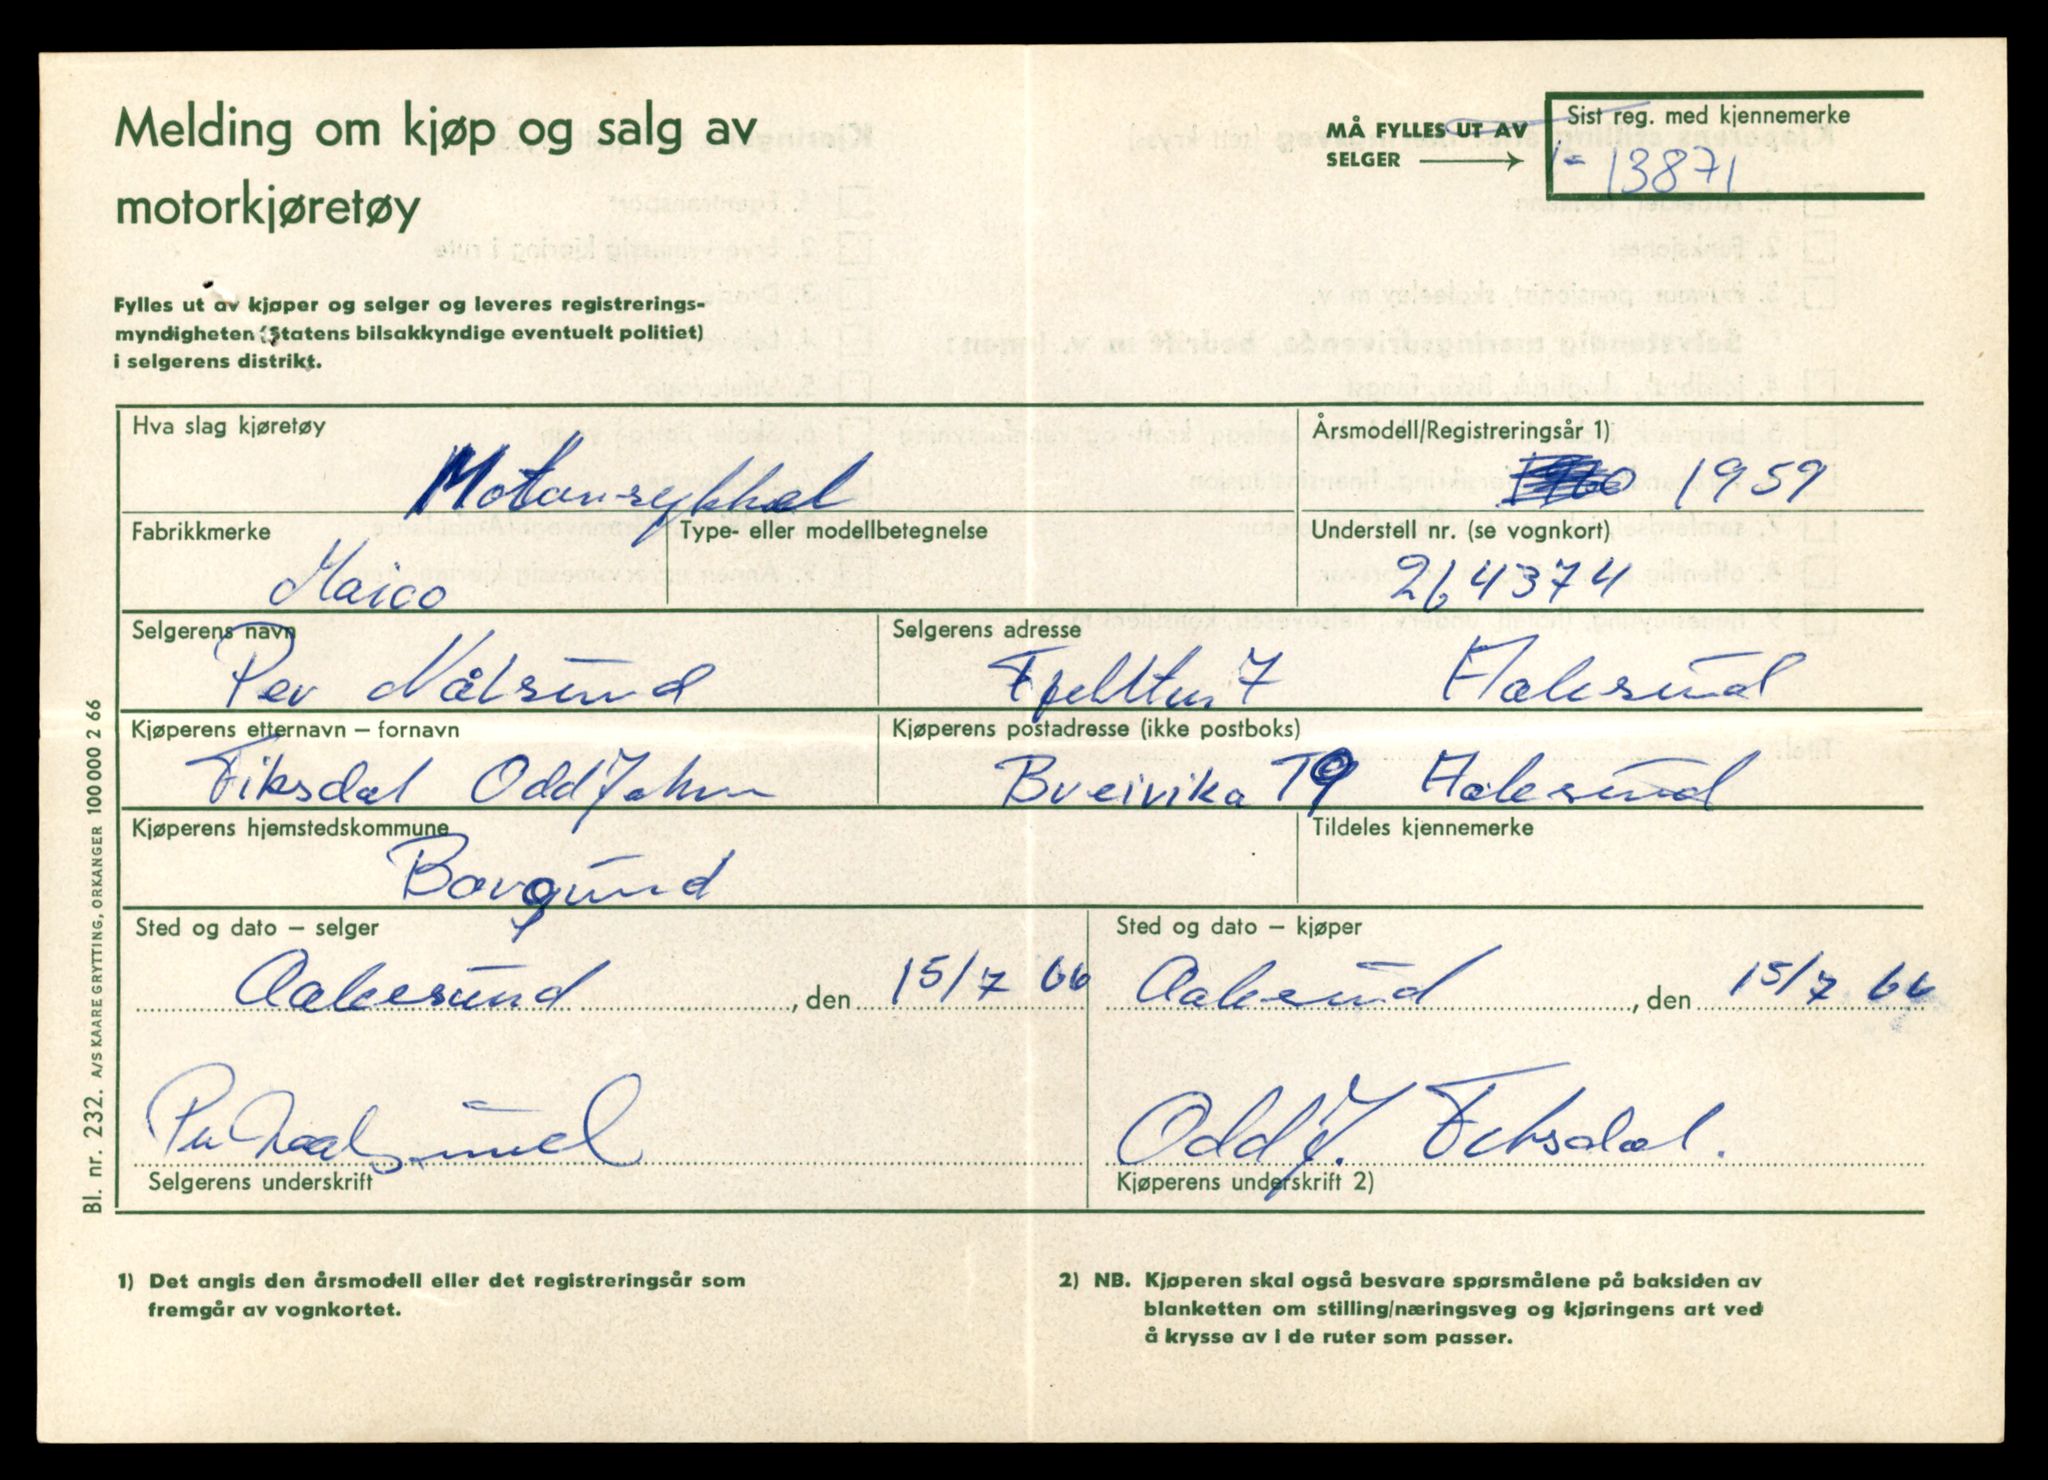 Melding om kjøp og salg av
motorkjøretøy
MÅ FYLLES UT AV
SELGER
Sist reg. med kjennemerke
13871
Fylles ut av kjøper og selger og leveres registrerings-
myndigheten (Statens bilsakkyndige eventuelt politiet)
i selgerens distrikt.
Hva slag kjøretøy
Motorsykkel
Årsmodell/Registreringsår 1)
1959
Fabrikkmerke
Maico
Type- eller modellbetegnelse
Understell nr. (se vognkort)
264374
Selgerens navn
Per Nålsund
Selgerens adresse
Aalesund
Kjøperens etternavn – fornavn
Fiksdal Odd John
Kjøperens postadresse (ikke postboks)
Breivika Aalesund
Kjøperens hjemstedskommune
Borgund
Tildeles kjennemerke
Sted og dato – selger
Aalesund, den 15/7 66
Sted og dato – kjøper
Aalesund, den 15/7 66
Per Naalsund
Selgerens underskrift
Odd J. Fiksdal.
Kjøperens underskrift 2)
1) Det angis den årsmodell eller det registreringsår som
fremgår av vognkortet.
2) NB. Kjøperen skal også besvare spørsmålene på baksiden av
blanketten om stilling/næringsveg og kjøringens art ved
å krysse av i de ruter som passer.
Bl. nr. 232. A/S KAARE GRYTTING, ORKANGER 100 000 2 66